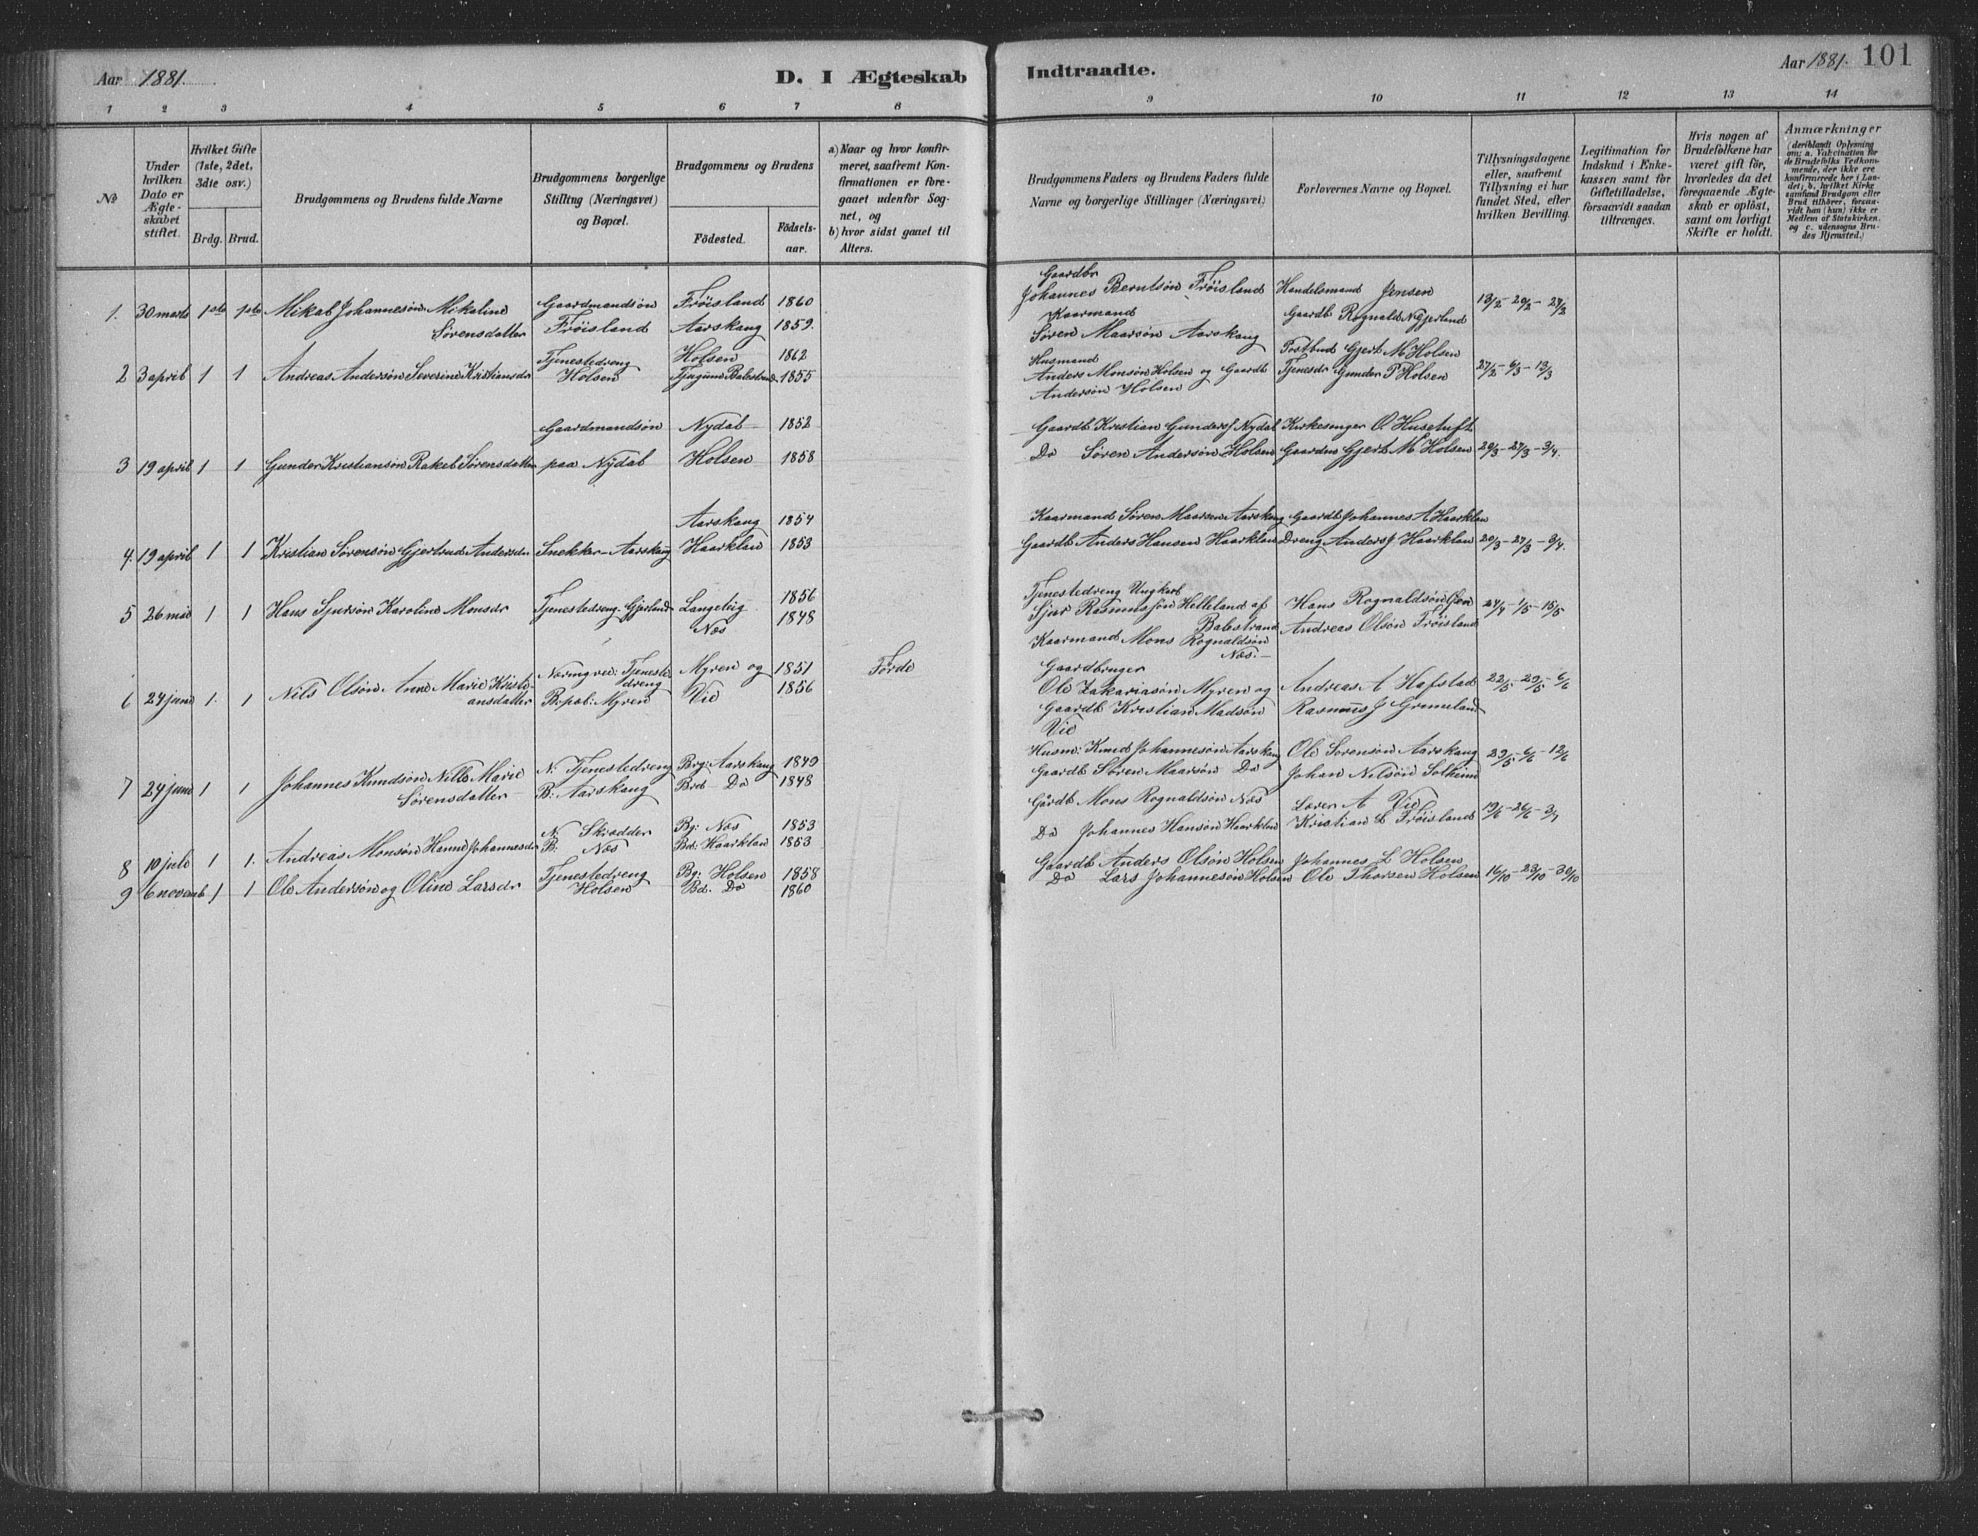 Aar 1881.
D. I Ægteskab
1 2 3 4 5 6 7 8
№
Under hvilken Dato er Ægteskabet stiftet.
Hvilket Gifte (1ste, 2det, 3die osv.)
Brdg. Brud.
Brudgommens og Brudens fulde Navne
Brudgommens borgerlige Stilling (Næringsvei) og Bopæl.
Brudgommens og Brudens
Födested.
Födsels-aar.
a) Naar og hvor konfirmeret, saafremt Konfirmationen er foregaaet udenfor Sognet, og
b) hvor sidst gaaet til Alters.
1. 30 marts 1ste 1ste Mikal Johannesøn Mikaline Gaardmandsøn Frøisland 1860
Sørensdatter Frøisland Aarskaug 1859.
Tjenestedreng Holsen 1862
2 3 april 1 1 Andreas Andersøn Severine Kristiansdr Holsen Tjugum Balestrand 1855
Gaardmandsøn Nydal 1852
3 19 april 1 1 Gunder Kristiansøn Rakel Sørensdatter paa Nydal Holsen 1858
Aarskaug 1854
4. 19 april 1 1 Kristian Sørensøn Gjertrud Andersdr Snekker Aarskaug Haarklau 1853
5 26 mai 1 1 Hans Sjursøn Karoline Monsdr Tjenestedreng Gjerland Langeteig 1856
Næs 1848
Næringvei: Tjeneste- Myren og 1851 Førde
dreng
6 24 juni 1. 1 Nils Olsøn Anne Marie Kristi- Bopæl: Myren Vie 1856
ansdatter
N. Tjenestedreng Brg: Aarskaug 1849
7 24 juni 1 1 Johannes Knudsøn Nille Marie B: Aarskaug Brd: Do 1848
Sørensdatter
N Skrædder Bg: Næs 1853
8 10 juli 1 1. Andreas Monsøn Hanne Johannesdr B. Næs Bd: Haarklau 1853
9 6 novemb 1 1 Ole Andersøn og Oline Larsdr Tjenestedreng Bg: Holsen 1858
Holsen Bd: Do 1860
Indtraadte.
Aar 1881. 101
9 10 11 12 13 14
Brudgommens Faders og Brudens Faders fulde Navne og borgerlige Stillinger (Næringsvei)
Forlovernes Navne og Bopæl.
Tillysningsdagene eller, saafremt Tillysning ei har fundet Sted, efter hvilken Bevilling.
Legitimation for Indskud i Enkekassen samt for Giftetilladelse, forsaavidt saadan tiltrænges.
Hvis nogen af Brudefolkene har været gift før, hvorledes da det foregaaende Ægteskab er oplöst, samt om lovligt Skifte er holdt.
Anmærkninger (deriblandt Oplysning om: a. Vaccination for de Brudefolks Vedkommende, der ikke ere konfirmerede her i Landet; b. hvilket Kirkesamfund Brudgom eller Brud tilhører, forsaavidt han (hun) ikke er Medlem af Statskirken, og c. udensogns Brudes Hjemsted.)
Gaardbr
Johannes Berntsøn Frøisland Handelsmand Jensen 13/2 - 20/2 - 27/2
Kaarmand Gaardb Rognald N Gjerland
Søren Maarsøn Aarskaug
Husmand Postbud Gjert M Holsen
Anders Monsøn Holsen og Gaardb Tjenesdr Gunder P Holsen 27/2 - 6/3 - 13/3
Andersøn Holsen
Gaardb Kristian Gunders/ Nydal Kirkesanger O Husetuft
Do Søren Andersøn Holsen Gaardm Gjert M Holsen 20/3 - 27/3 - 3/4.
Kaarmand Søren Maarsen Aarskaug Gaardb Johannes A Haarklau
Gaardb Anders Hansen Haarklau Dreng Anders J Haarklau 20/3 - 27/3 - 3/4.
Tjenestedreng Ungkarl
Sjur Rasmussøn Helleland af Hans Rognaldsøn 24/4 - 1/5 - 15/5
Balestrand Andreas Olsøn Frøisland
Kaarmand Mons Rognaldsøn
Næs.
Gaardbruger
Ole Zakariasøn Myren og Andreas A Hafstad 22/5 - 29/5 - 6/6
Gaardb Kristian Madsøn Rasmus J Grimeland
Vie
Husm: Knud Johannesøn Aarskaug Ole Sørensøn Aarskaug 29/5 - 6/6 - 12/6
Gaardb Søren Maarsøn Do Johan Nilsøn Solheim
Gårdb Mons Rognaldsøn Næs Lærer A Vie 19/6 - 26/6 - 3/7
Do Johannes Hansøn Haarklau Kristian B Frøisland
Gaardb Anders Olsøn Holsen Johannes L Holsen
Do Lars Johannesøn Holsen Ole Thorsen Holsen 16/10 - 23/10 - 30/10